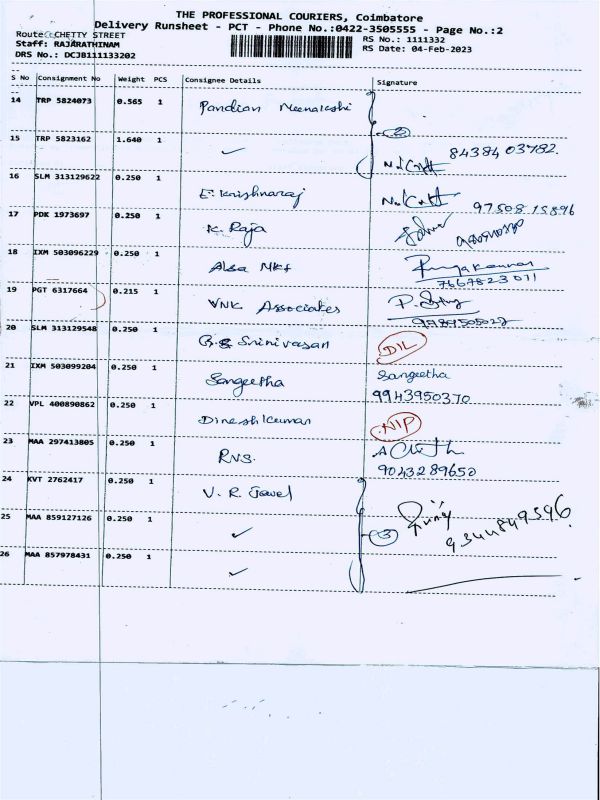 THE PROFESSIONAL COURIERS, Coimbatore
Delivery Runsheet - PCT - Phone No.:0422-3505555 - Page No.:2
Route: CHETTY STREET RS No.: 1111332
Staff: RAJARATHINAM RS Date: 04-Feb-2023
DRS No.: DCJB111133202
S No Consignment No Weight PCS Consignee Details Signature
14 TRP 5824073 0.565 1 Pandian Meenakshi
2
15 TRP 5823162 1.640 1 ✓ 8438403782.
16 SLM 313129622 0.250 1 E. Krishnaraj 97508 15896
17 PDK 1973697 0.250 1 K. Raja
18 IXM 503096229 0.250 1 Alsa Mkt
7667823011
19 PGT 6317664 0.215 1 VNK Associates
20 SLM 313129548 0.250 1 Srinivasan DIL
21 IXM 503099204 0.250 1 Sangeetha Sangeetha
9943950370
22 VPL 400890862 0.250 1 Dineshkumar NIP
23 MAA 297413805 0.250 1 RVS.
9043289650
24 KVT 2762417 0.250 1 V. R. Jewel
25 MAA 859127126 0.250 1 ✓ 3 9344849596
26 MAA 857978431 0.250 1 ✓